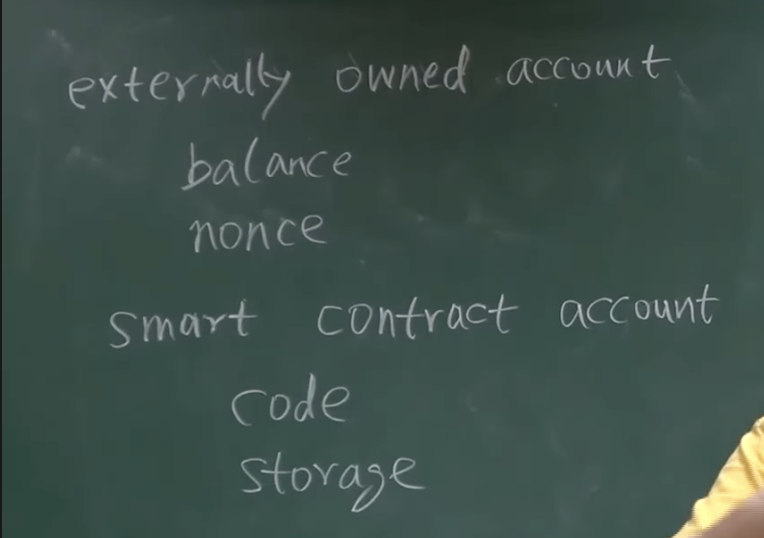 externally owned account
balance
nonce
smart contract account
code
storage